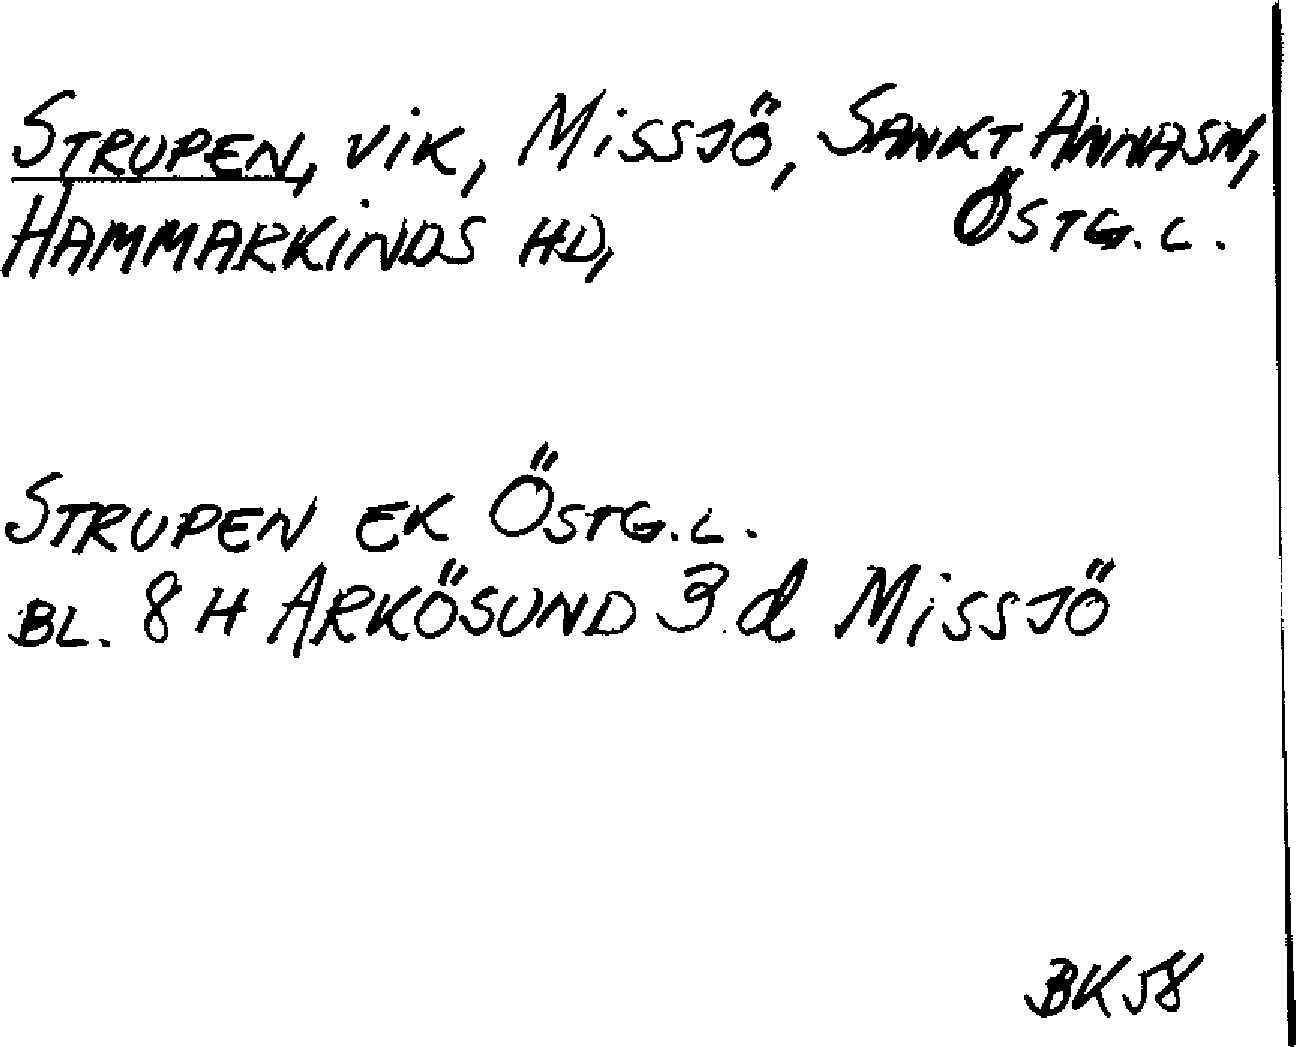 STRUPEN, VIK, MISSJÖ, SANKT ANNA SN,
HAMMARKINDS HD, ÖSTG. L.
STRUPEN EK ÖSTG. L.
BL. 8 H ARKÖSUND 3 d MISSJÖ
BK 58